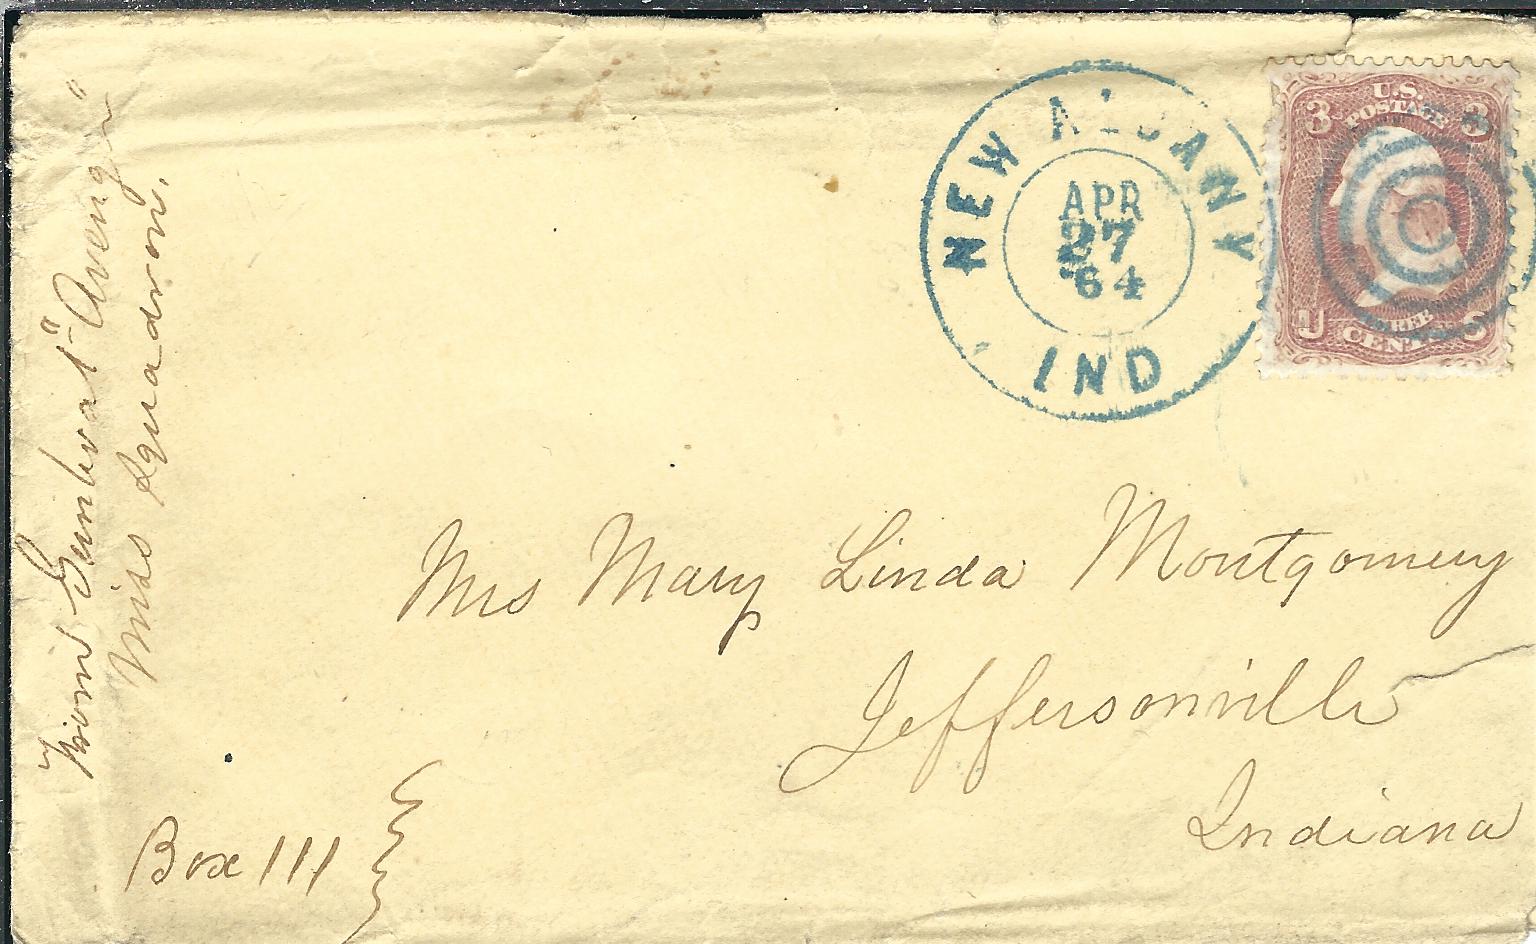 From Gunboat "Avenger"
Miss Squadron.
NEW ALBANY
APR
27
'64
IND
U.S.
POSTAGE
3 3
U S
THREE
CENTS
Mrs Mary Linda Montgomery
Jeffersonville
Indiana
Box 111